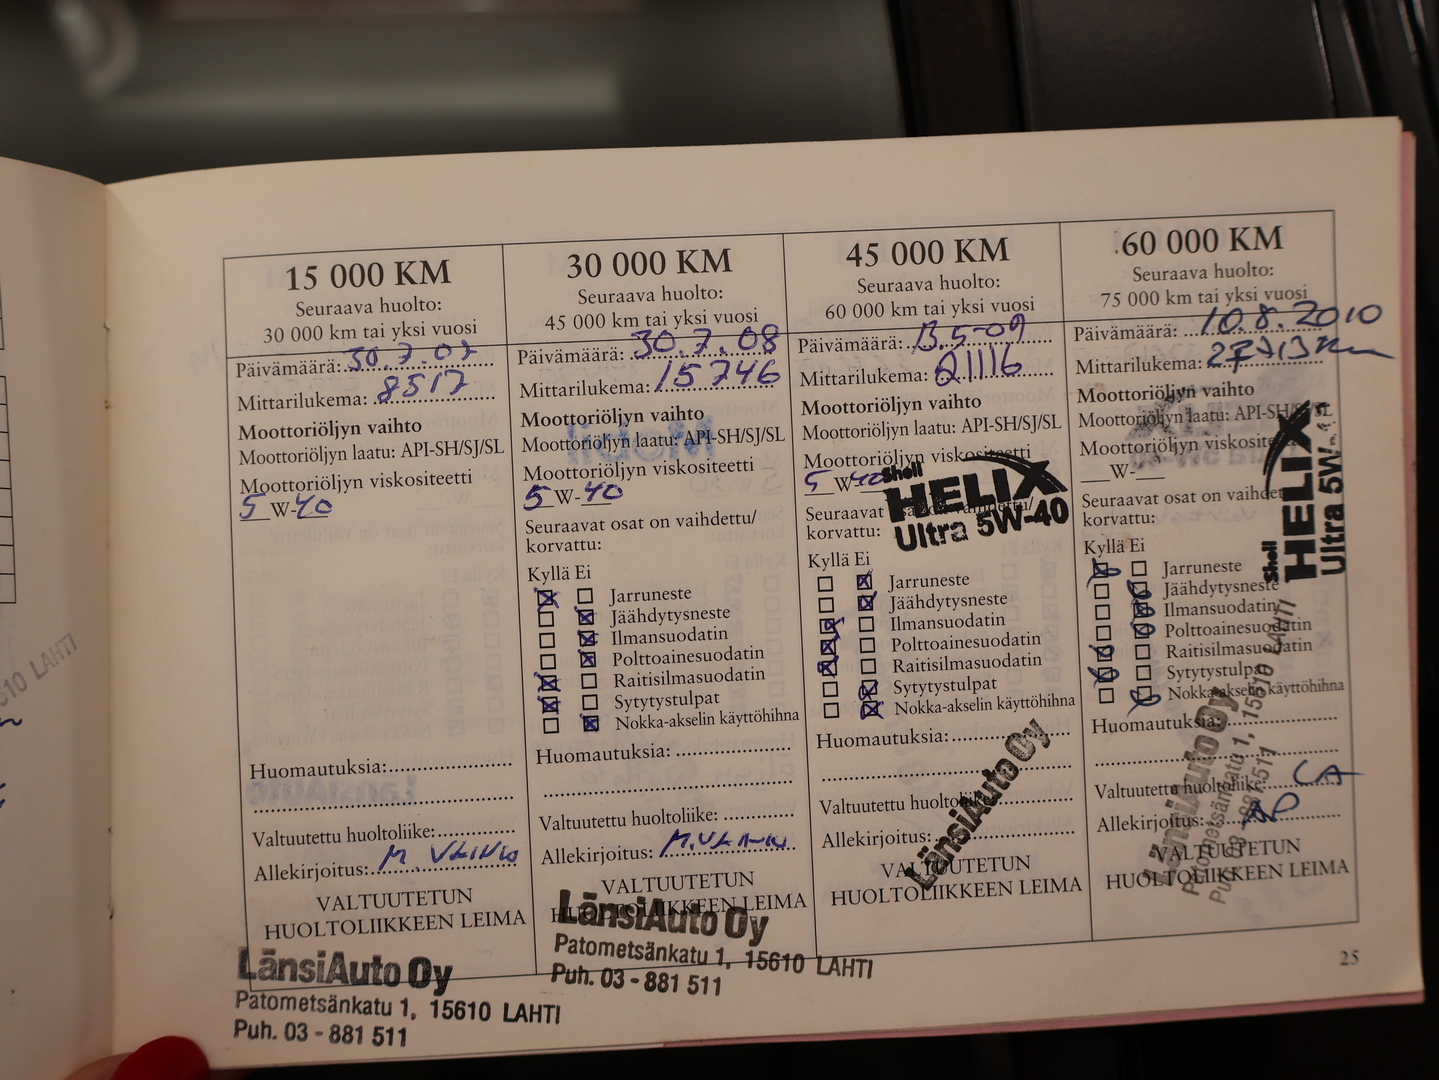 15 000 KM
Seuraava huolto:
30 000 km tai yksi vuosi
Päivämäärä: 30.7.07
Mittarilukema: 8517
Moottoriöljyn vaihto
Moottoriöljyn laatu: API-SH/SJ/SL
Moottoriöljyn viskositeetti
5 W-40
Huomautuksia:
Valtuutettu huoltoliike:
Allekirjoitus: M.
VALTUUTETUN
HUOLTOLIIKKEEN LEIMA
LänsiAuto Oy
Patometsänkatu 1, 15610 LAHTI
Puh. 03 - 881 511
30 000 KM
Seuraava huolto:
45 000 km tai yksi vuosi
Päivämäärä: 30.7.08
Mittarilukema: 15746
Moottoriöljyn vaihto
Moottoriöljyn laatu: API-SH/SJ/SL
Moottoriöljyn viskositeetti
5 W-40
Seuraavat osat on vaihdettu/
korvattu:
Kyllä Ei
Jarruneste
Jäähdytysneste
Ilmansuodatin
Polttoainesuodatin
Raitisilmasuodatin
Sytytystulpat
Nokka-akselin käyttöhihna
Huomautuksia:
Valtuutettu huoltoliike:
Allekirjoitus: M.
VALTUUTETUN
HUOLTOLIIKKEEN LEIMA
LänsiAuto Oy
Patometsänkatu 1, 15610 LAHTI
Puh. 03 - 881 511
45 000 KM
Seuraava huolto:
60 000 km tai yksi vuosi
Päivämäärä: 13.5-09
Mittarilukema: 21116
Moottoriöljyn vaihto
Moottoriöljyn laatu: API-SH/SJ/SL
Moottoriöljyn viskositeetti
5 W-40
Shell
HELIX
Ultra 5W-40
Seuraavat osat on vaihdettu/
korvattu:
Kyllä Ei
Jarruneste
Jäähdytysneste
Ilmansuodatin
Polttoainesuodatin
Raitisilmasuodatin
Sytytystulpat
Nokka-akselin käyttöhihna
Huomautuksia:
Valtuutettu huoltoliike:
Allekirjoitus:
LänsiAuto Oy
VALTUUTETUN
HUOLTOLIIKKEEN LEIMA
60 000 KM
Seuraava huolto:
75 000 km tai yksi vuosi
Päivämäärä: 10.8.2010
Mittarilukema: 27713 km
Moottoriöljyn vaihto
Moottoriöljyn laatu: API-SH/SJ/SL
Moottoriöljyn viskositeetti
W-
Shell
HELIX
Ultra 5W
Seuraavat osat on vaihdettu/
korvattu:
Kyllä Ei
Jarruneste
Jäähdytysneste
Ilmansuodatin
Polttoainesuodatin
Raitisilmasuodatin
Sytytystulpat
Nokka-akselin käyttöhihna
Huomautuksia:
Valtuutettu huoltoliike: LA
Allekirjoitus: AP
VALTUUTETUN
HUOLTOLIIKKEEN LEIMA
LänsiAuto Oy
Patometsänkatu 1, 15610 LAHTI
Puh. 03 - 881 511
25
610 LAHTI